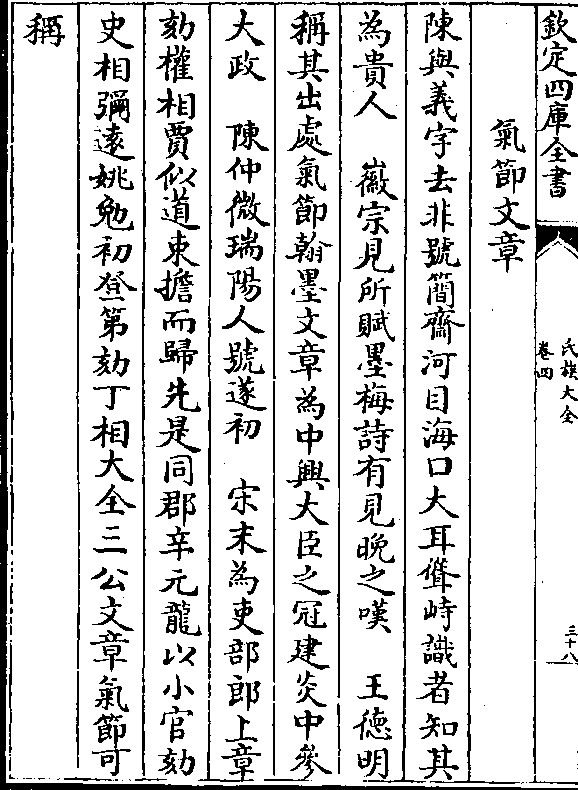 欽定四庫全書
氏族大全
卷四
三十八
氣節文章
陳與義字去非號簡齋河目海口大耳聳峙識者知其
為貴人 徽宗見所賦墨梅詩有見晚之嘆 王德明
稱其出處氣節翰墨文章為中興大臣之冠建炎中參
大政 陳仲微瑞陽人號遂初 宋末為吏部郎上章
劾權相賈似道束擔而歸先是同郡辛元龍以小官劾
史相彌逺姚勉初登第劾丁相大全三公文章氣節可
稱